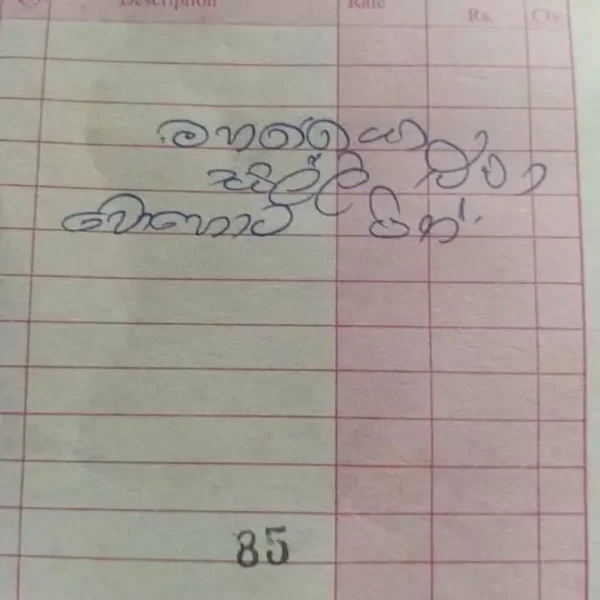 Description Rate Rs. Cts.
මහත්තයා
සල්ලි
බොහොම පින්.
85